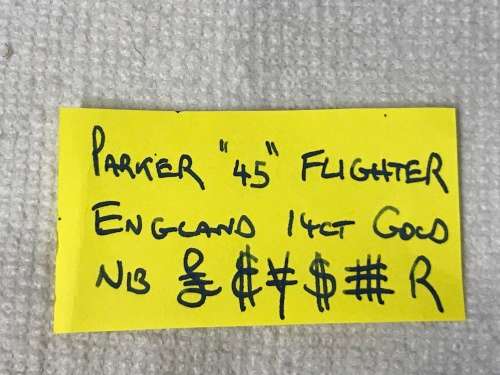 PARKER "45" FLIGHTER
ENGLAND 14CT GOLD
NIB £ ₵ ¥ $ # R